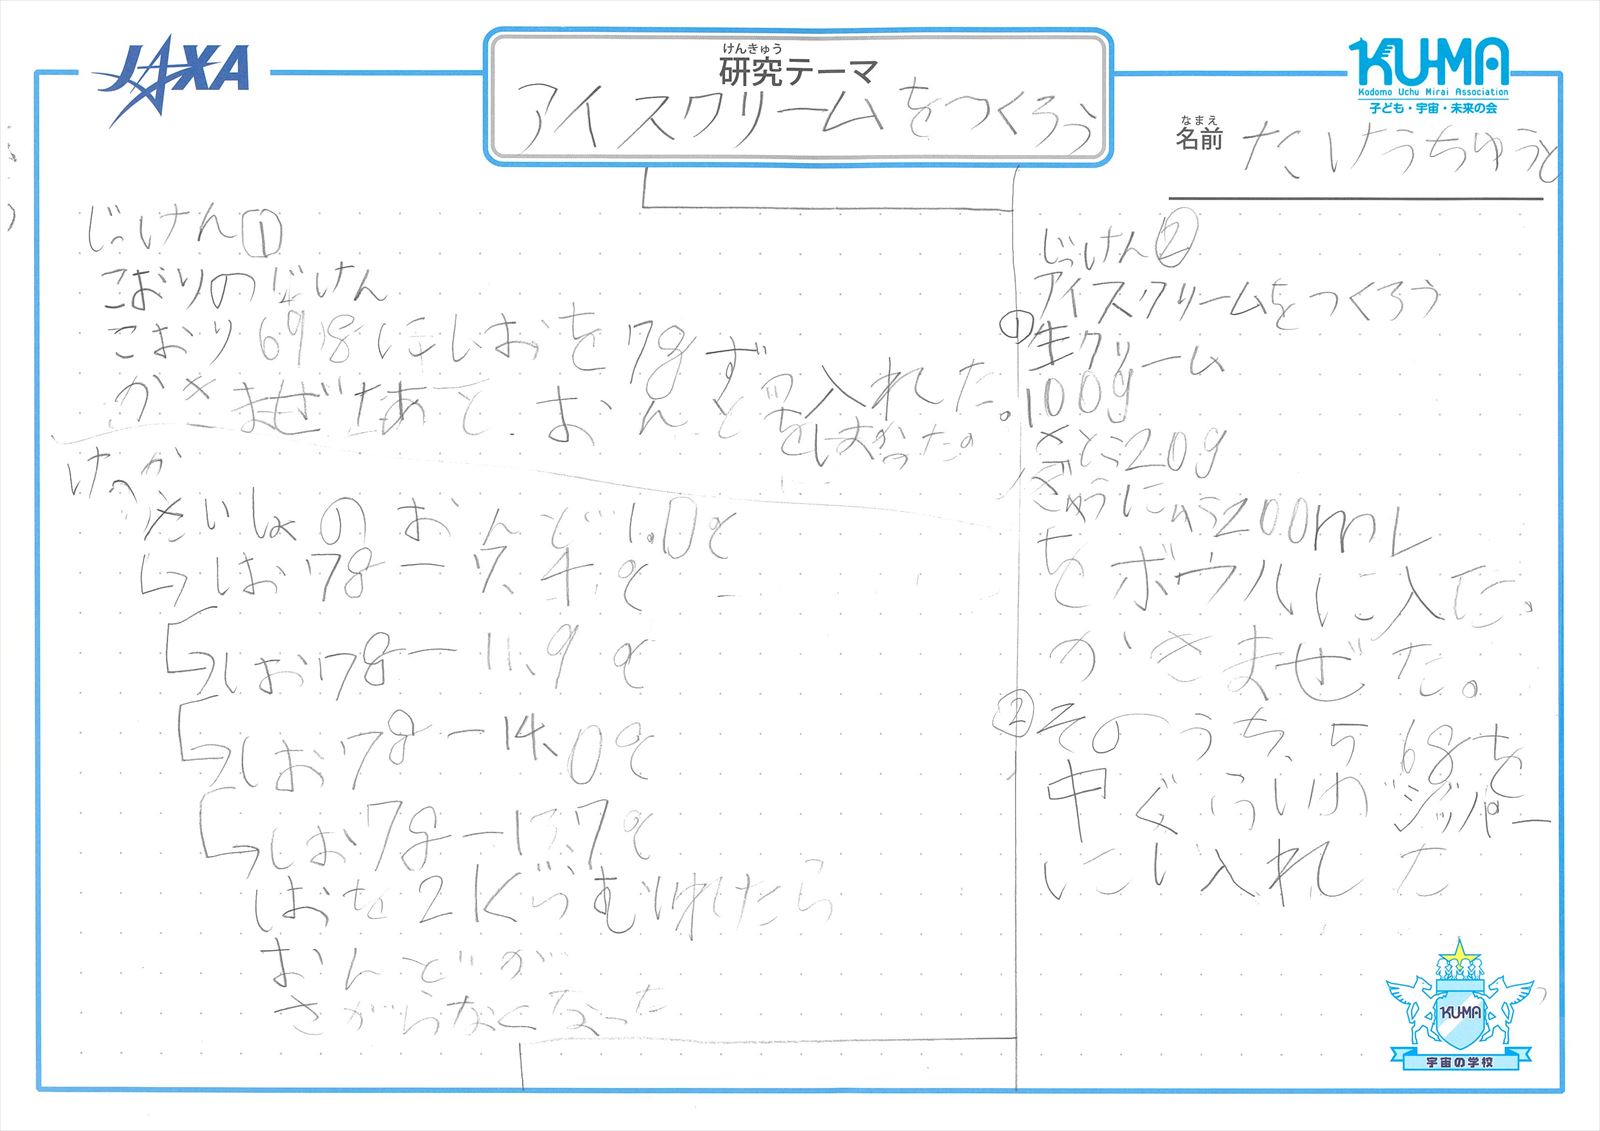 JAXA
けんきゅう
研究テーマ
アイスクリームをつくろう
KU-MA
Kodomo Uchu Mirai Association
子ども・宇宙・未来の会
なまえ
名前 たけうちゆうと
じっけん1
こおりのじけん
こおり698にしおを78ずつ入れた。
かきまぜたあと、おんどをはかった。
けっか
さいしょのおんど1.0℃
↳しお78ー7.4℃
↳しお78ー11.9℃
↳しお78ー14.0℃
↳しお78ー13.7℃
おんどが
さがらなくなった
じっけん②
アイスクリームをつくろう
①生クリーム
100g
さとう20g
ぎゅうにゅう200mL
をボウルに入た。
かきまぜた。
②そのうち、568を
中ぐらいのジッパー
に入れた
KU-MA
宇宙の学校